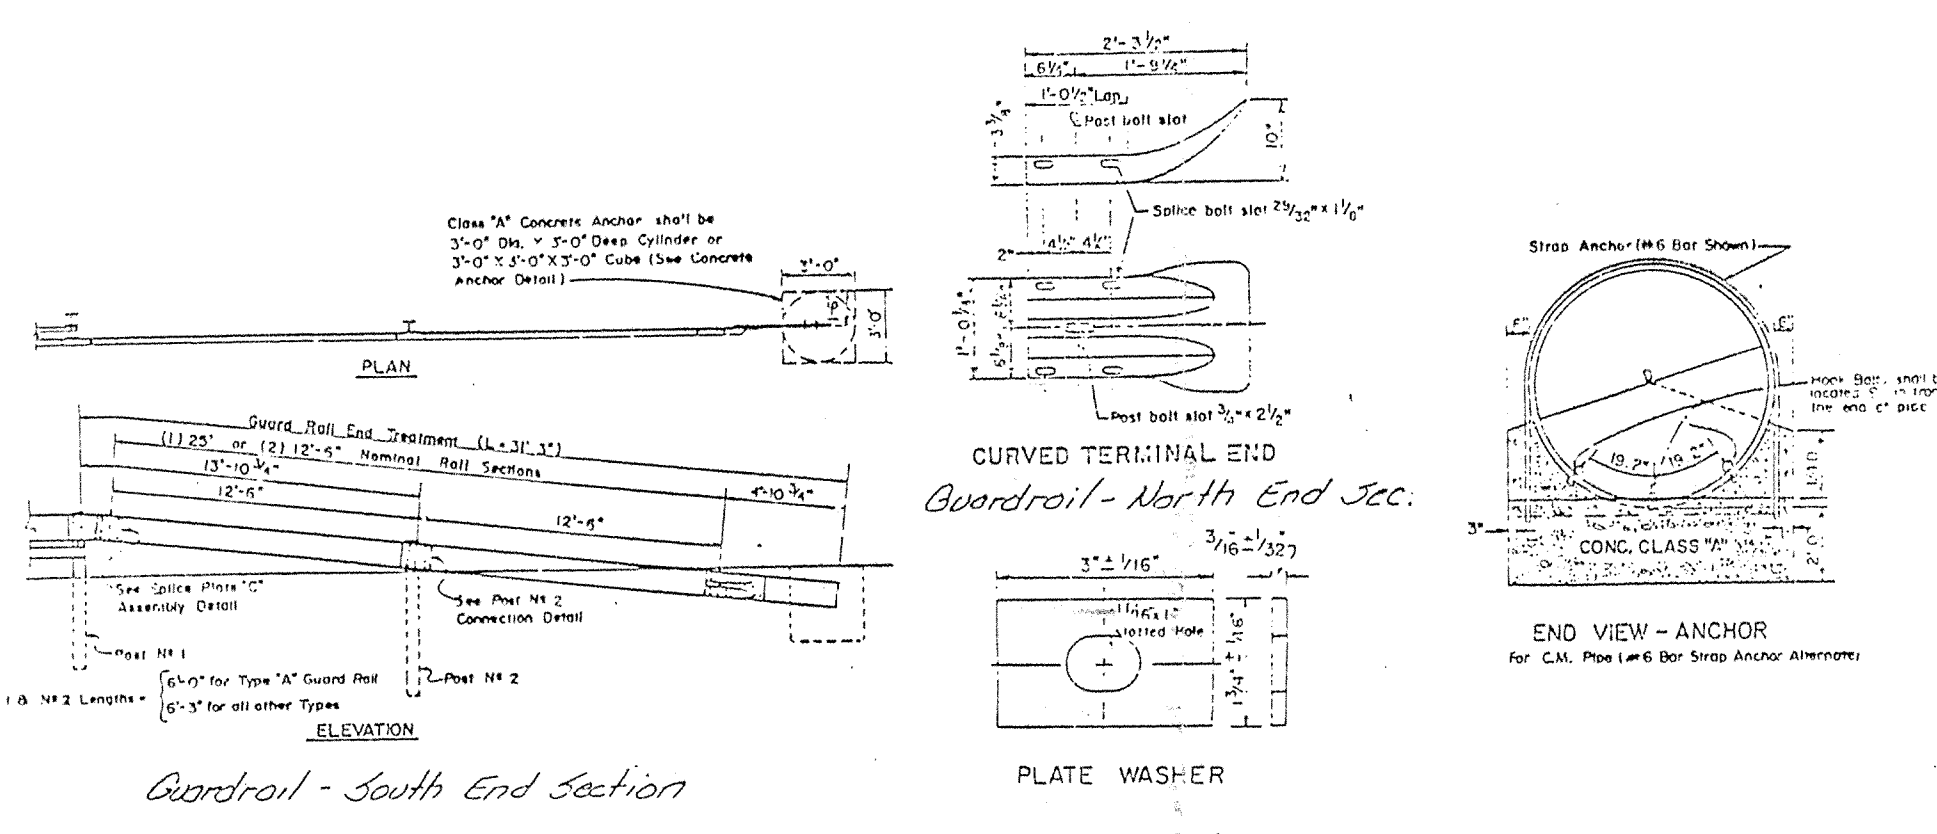 Class "A" Concrete Anchor shall be
3'-0" Dia. x 3'-0" Deep Cylinder or
3'-0" X 3'-0" X 3'-0" Cube (See Concrete
Anchor Detail)
3'-0"
3'-0"
PLAN
Guard Rail End Treatment (L = 31' 3")
(1) 25' or (2) 12'-6" Nominal Rail Sections
13'-10 3/4"
12'-6"
4'-10 3/4"
12'-6"
See Splice Plate "C"
Assembly Detail
See Post Nº 2
Connection Detail
Post Nº 1
Post Nº 2
1 & Nº 2 Lengths =
6'-0" for Type "A" Guard Rail
6'-3" for all other Types
ELEVATION
Guardrail - South End Section
2'-3 1/2"
6 1/4" 1'-9 1/4"
1'-0 1/2" Lap
℄ Post bolt slot
3 3/8"
10"
Splice bolt slot 29/32" x 1 1/8"
2" 4 1/4" 4 1/4"
1'-0 1/4"
Post bolt slot 3/4" x 2 1/2"
CURVED TERMINAL END
Guardrail - North End Sec.
3" ± 1/16"
3/16" ± 1/32"
11/16 x 1"
Slotted Hole
1 3/4" ± 1/16"
PLATE WASHER
Strap Anchor (#6 Bar Shown)
6"
6"
Hook Bolt, shall b
located 9" in fro
the end of pipe
19.2" 19.2"
1'-10"
3"
CONC. CLASS "A"
2'-0"
END VIEW - ANCHOR
For C.M. Pipe (#6 Bar Strap Anchor Alternate)